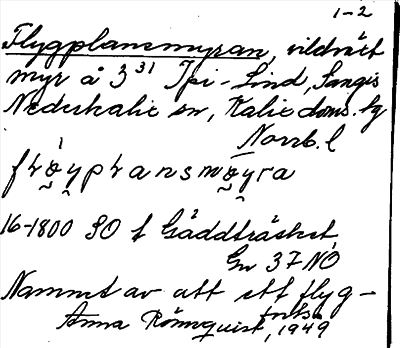 1-2
Flygplansmyran, vildväxt
myr å 3 31 Spi-Lind, Sangis
Nederkalix sn, Kalix doms. lg
Norrb. l
16-1800 SO f Gäddträsket
Gv 37 NO
Namnet av att ett flyg-
Anna Rönnquist, 1949